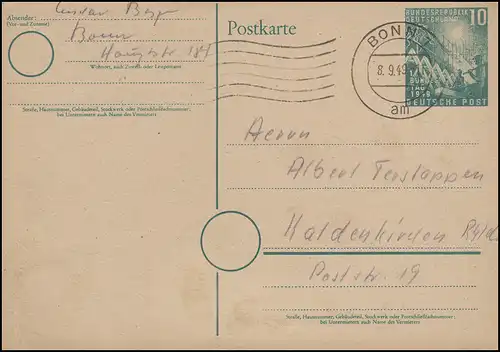 Absender:
(Vor- und Zuname)
Bonn
Hauptstr 187
Wohnort, auch Zustell- oder Leitpostamt
Straße, Hausnummer, Gebäudeteil, Stockwerk oder Postschließfachnummer;
bei Untermietern auch Name des Vermieters
Postkarte
BONN
8. 9.49
am
10
BUNDESREPUBLIK
DEUTSCHLAND
DEUTSCHE POST
Herrn
Albert Terstappen
Kaldenkirchen Rhld.
Poststr. 19
Straße, Hausnummer, Gebäudeteil, Stockwerk oder Postschließfachnummer;
bei Untermietern auch Name des Vermieters